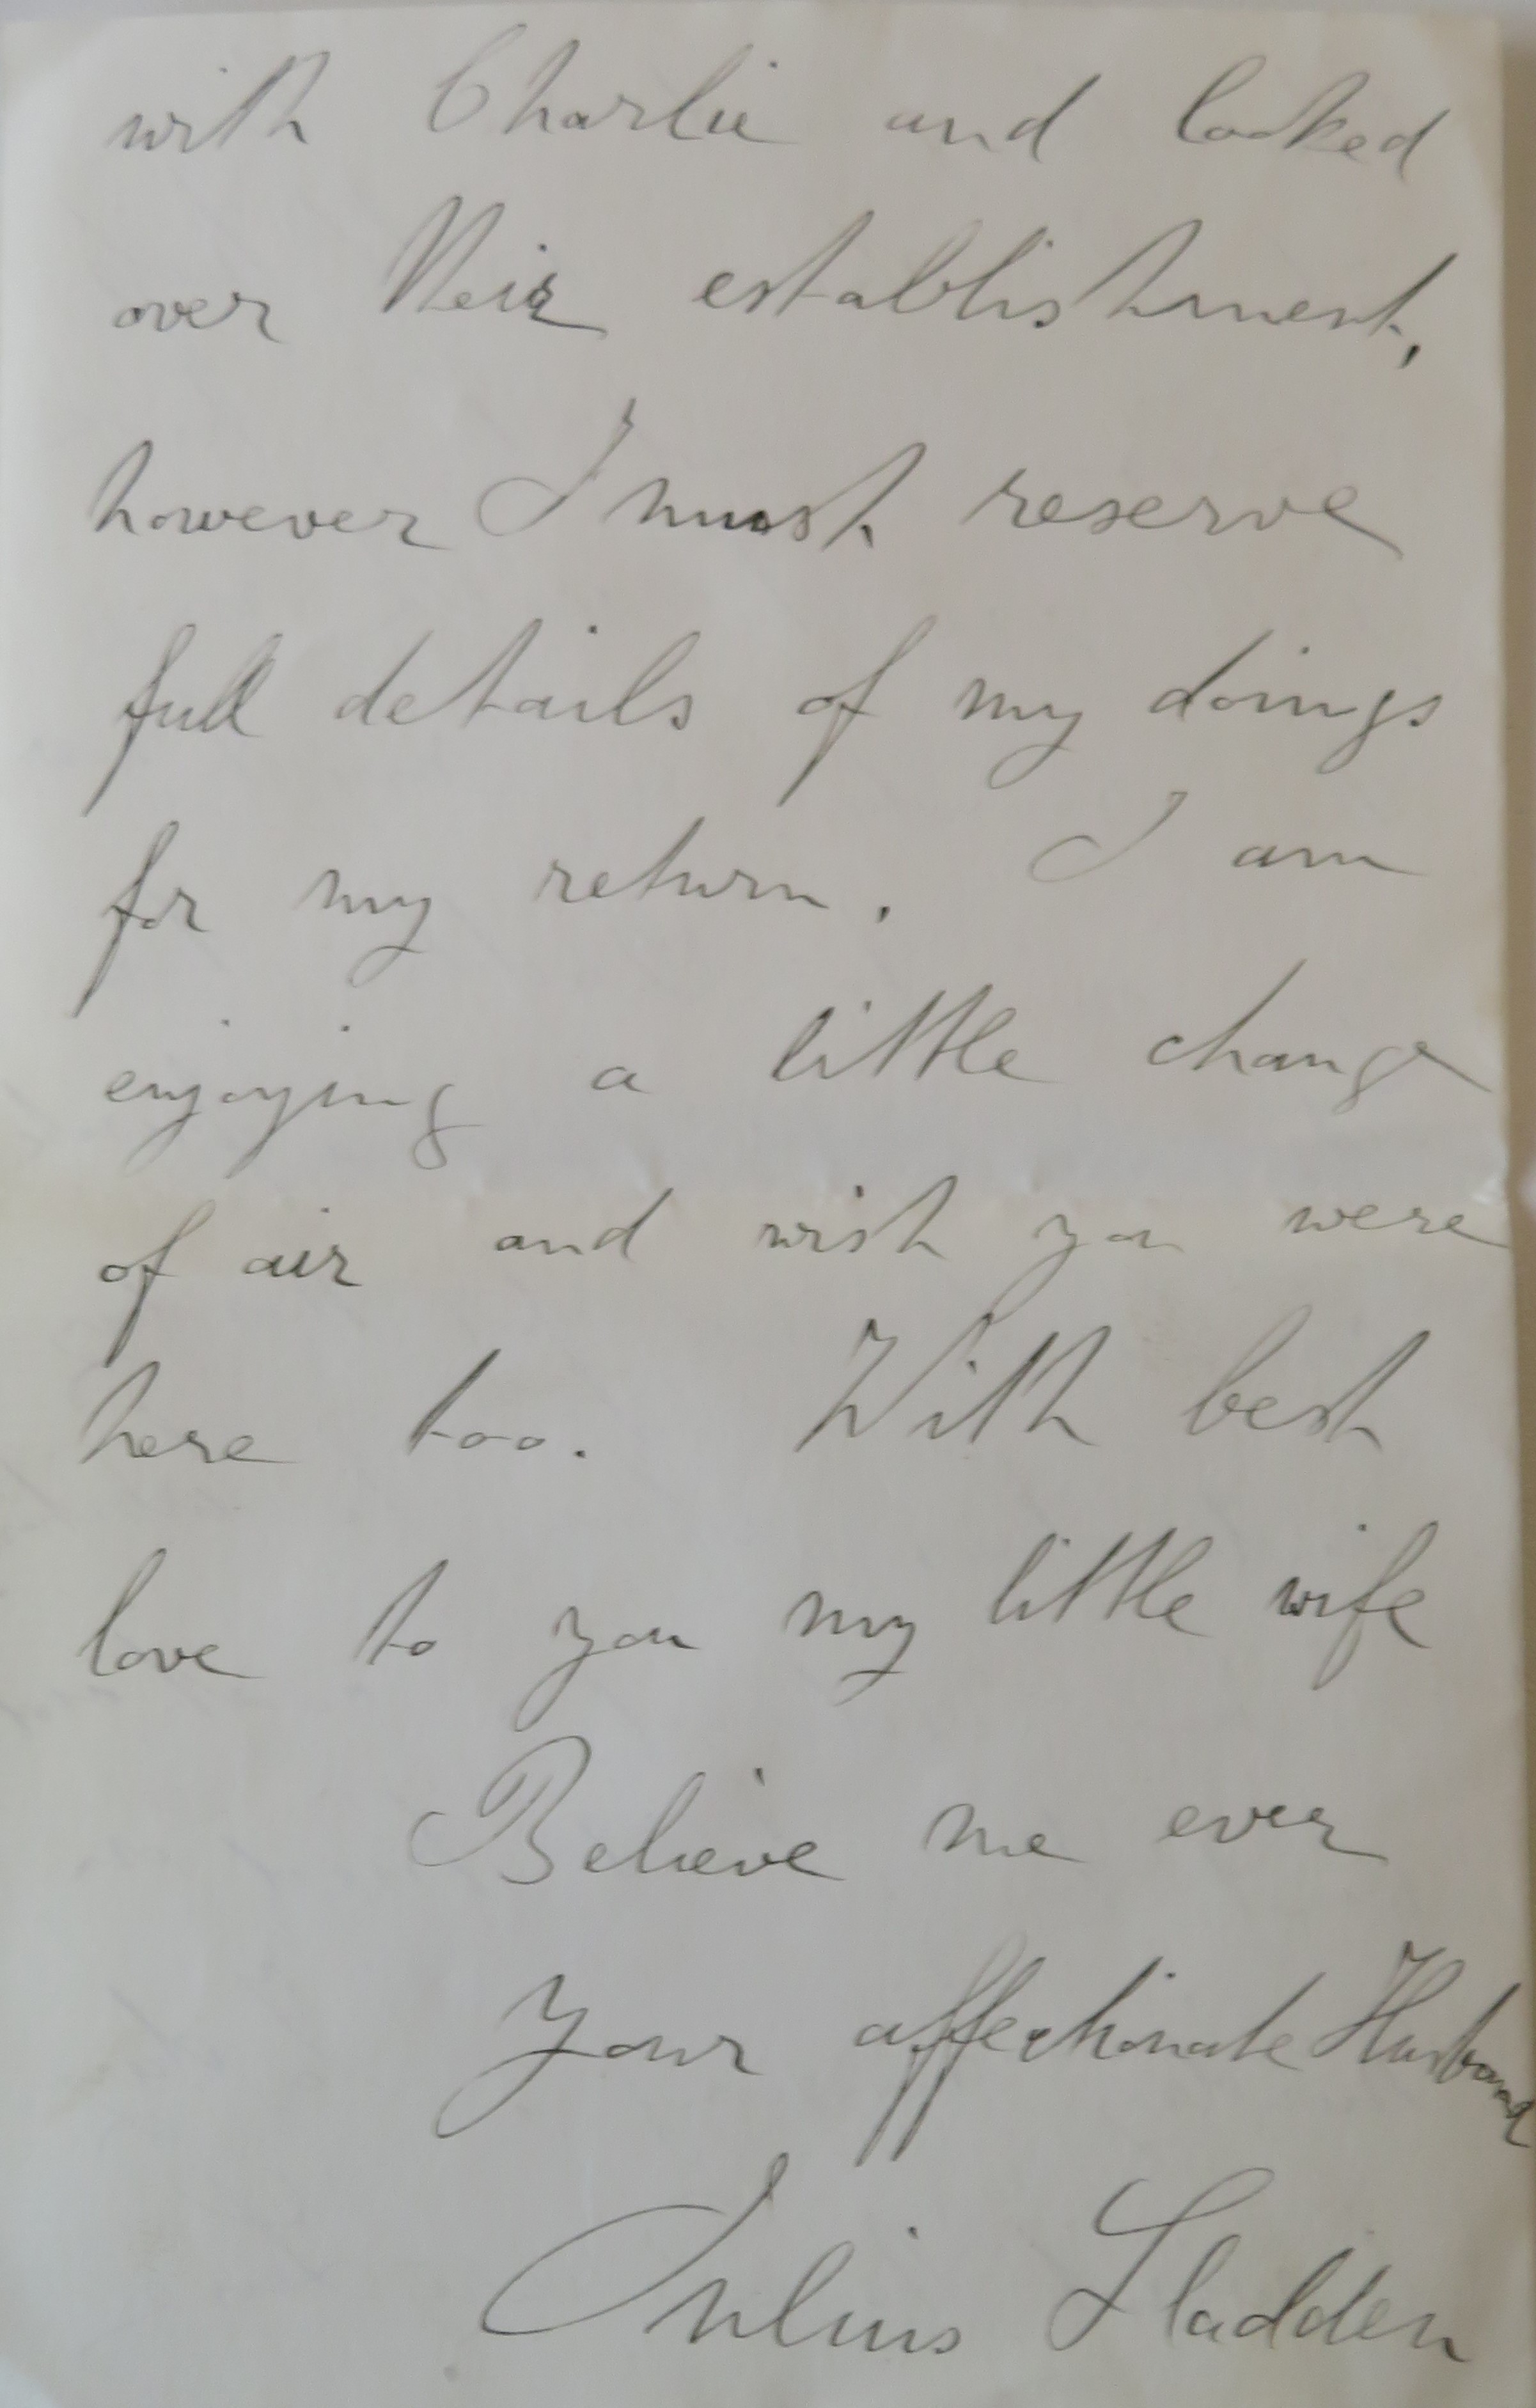 with Charlie and looked
over their establishment,
however I must reserve
full details of my doings
for my return. I am
enjoying a little change
of air and wish you were
here too. With best
love to you my little wife
Believe me ever
Your affectionate Husband
Julius Sladden